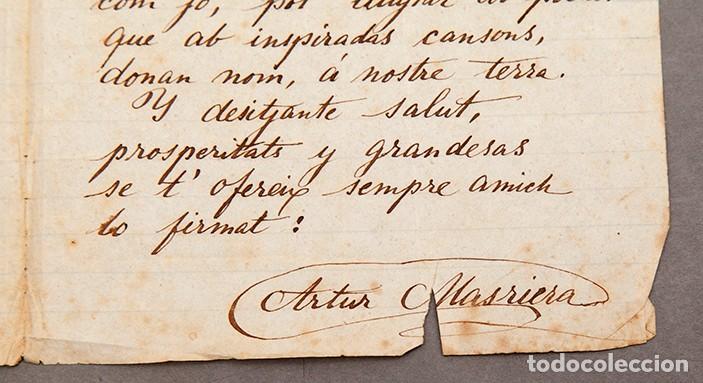 com jo, pot
que ab inspiradas cansons,
donan nom, á nostre terra.
Y desitjante salut,
prosperitats y grandesas
se t' ofereix sempre amich
lo firmat:
Artur Masriera
todocoleccion